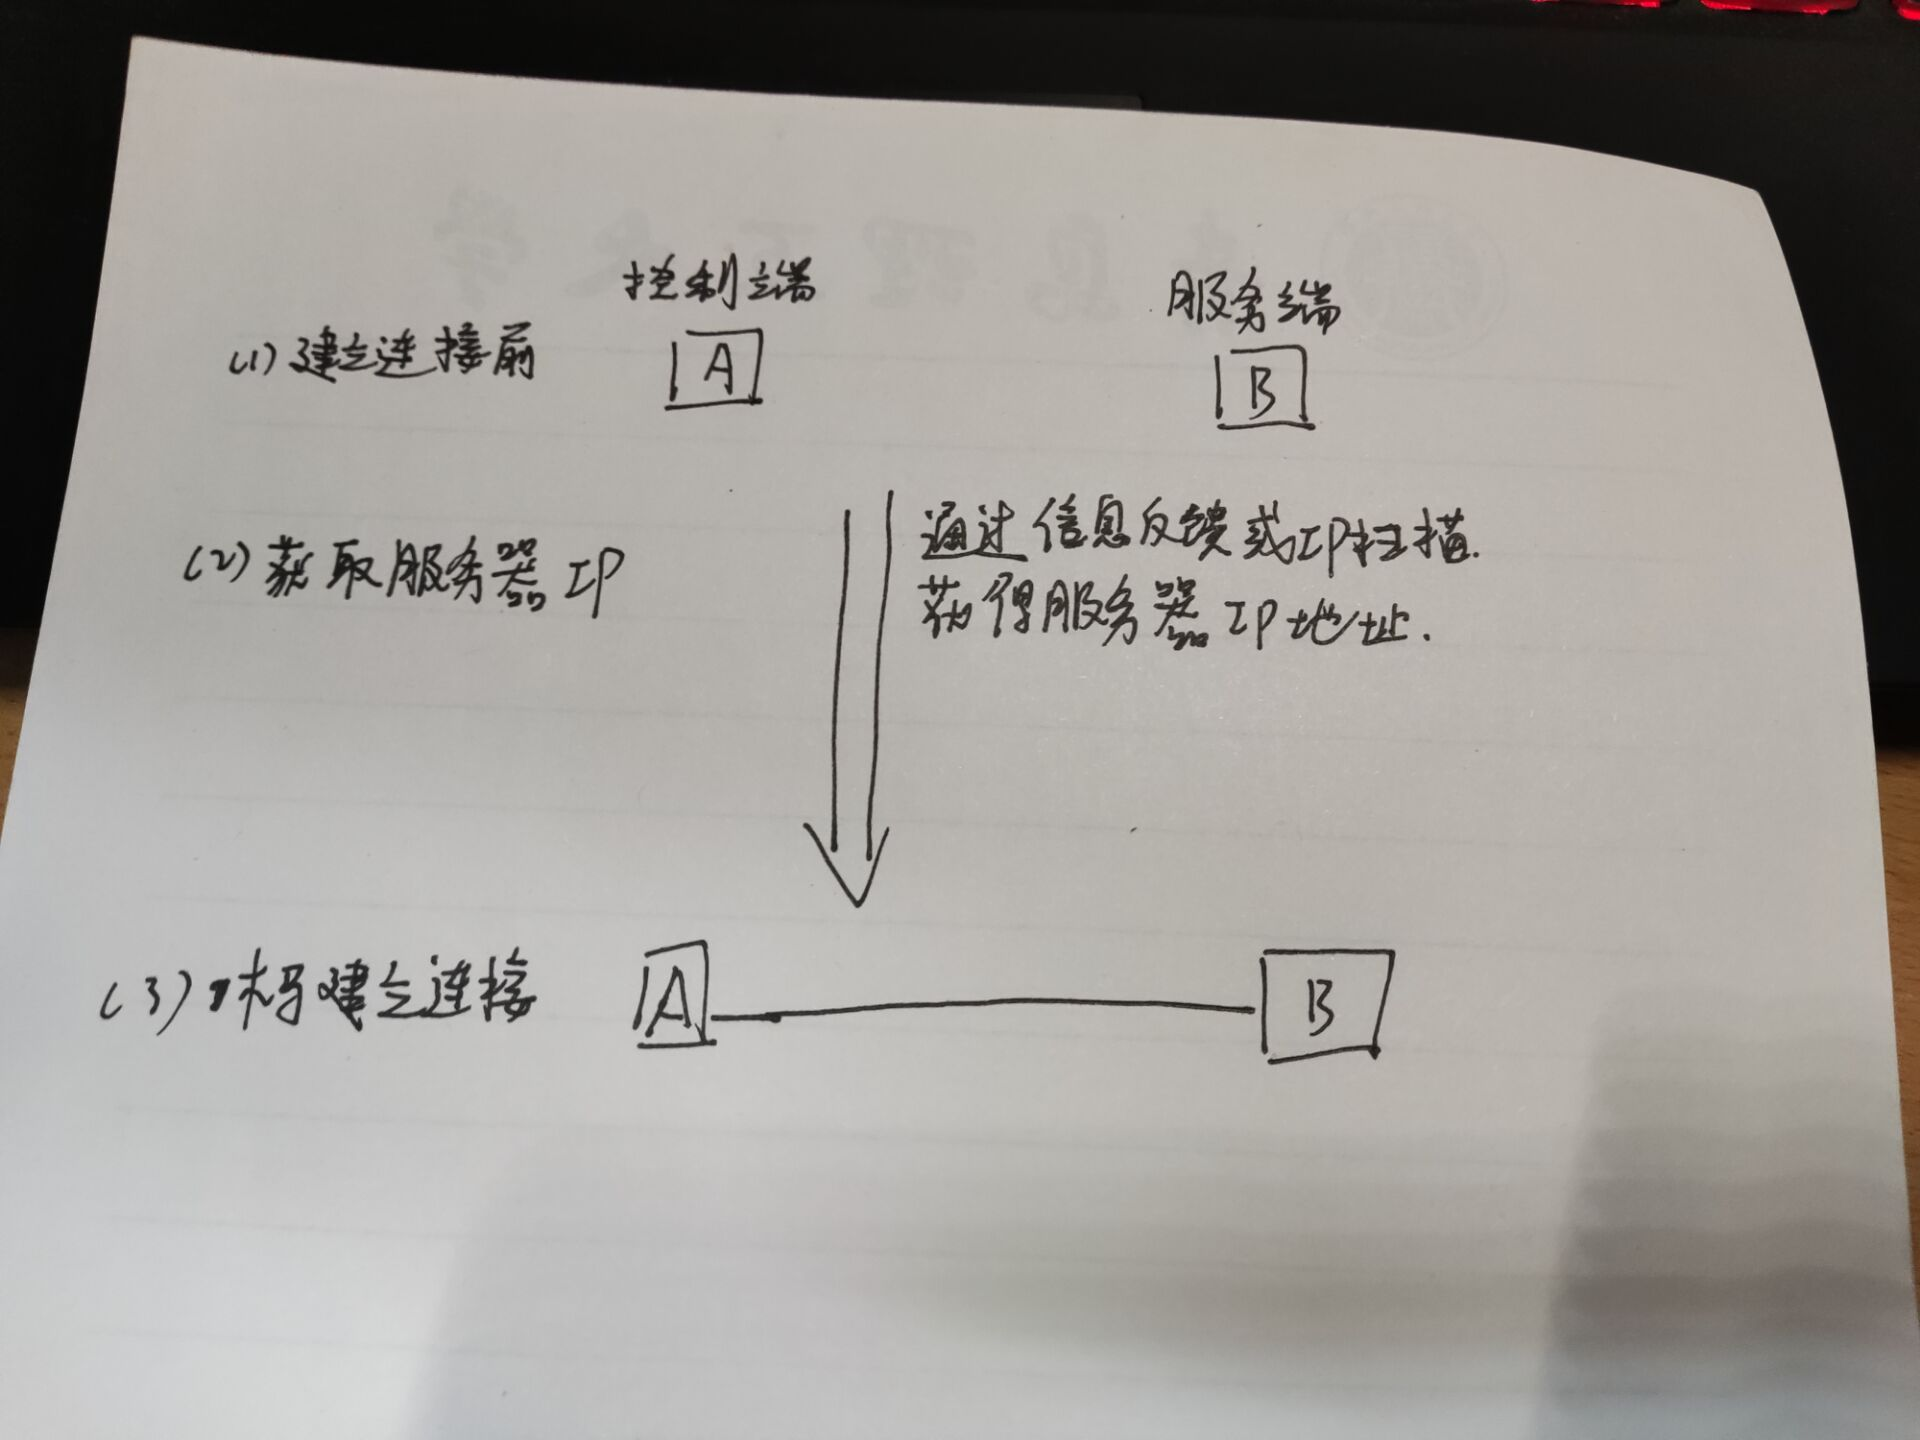 控制端
服务端
(1) 建立连接前
A
B
(2) 获取服务器IP
通过信息反馈或IP扫描.
获得服务器IP地址.
(3) 木马建立连接
A
B